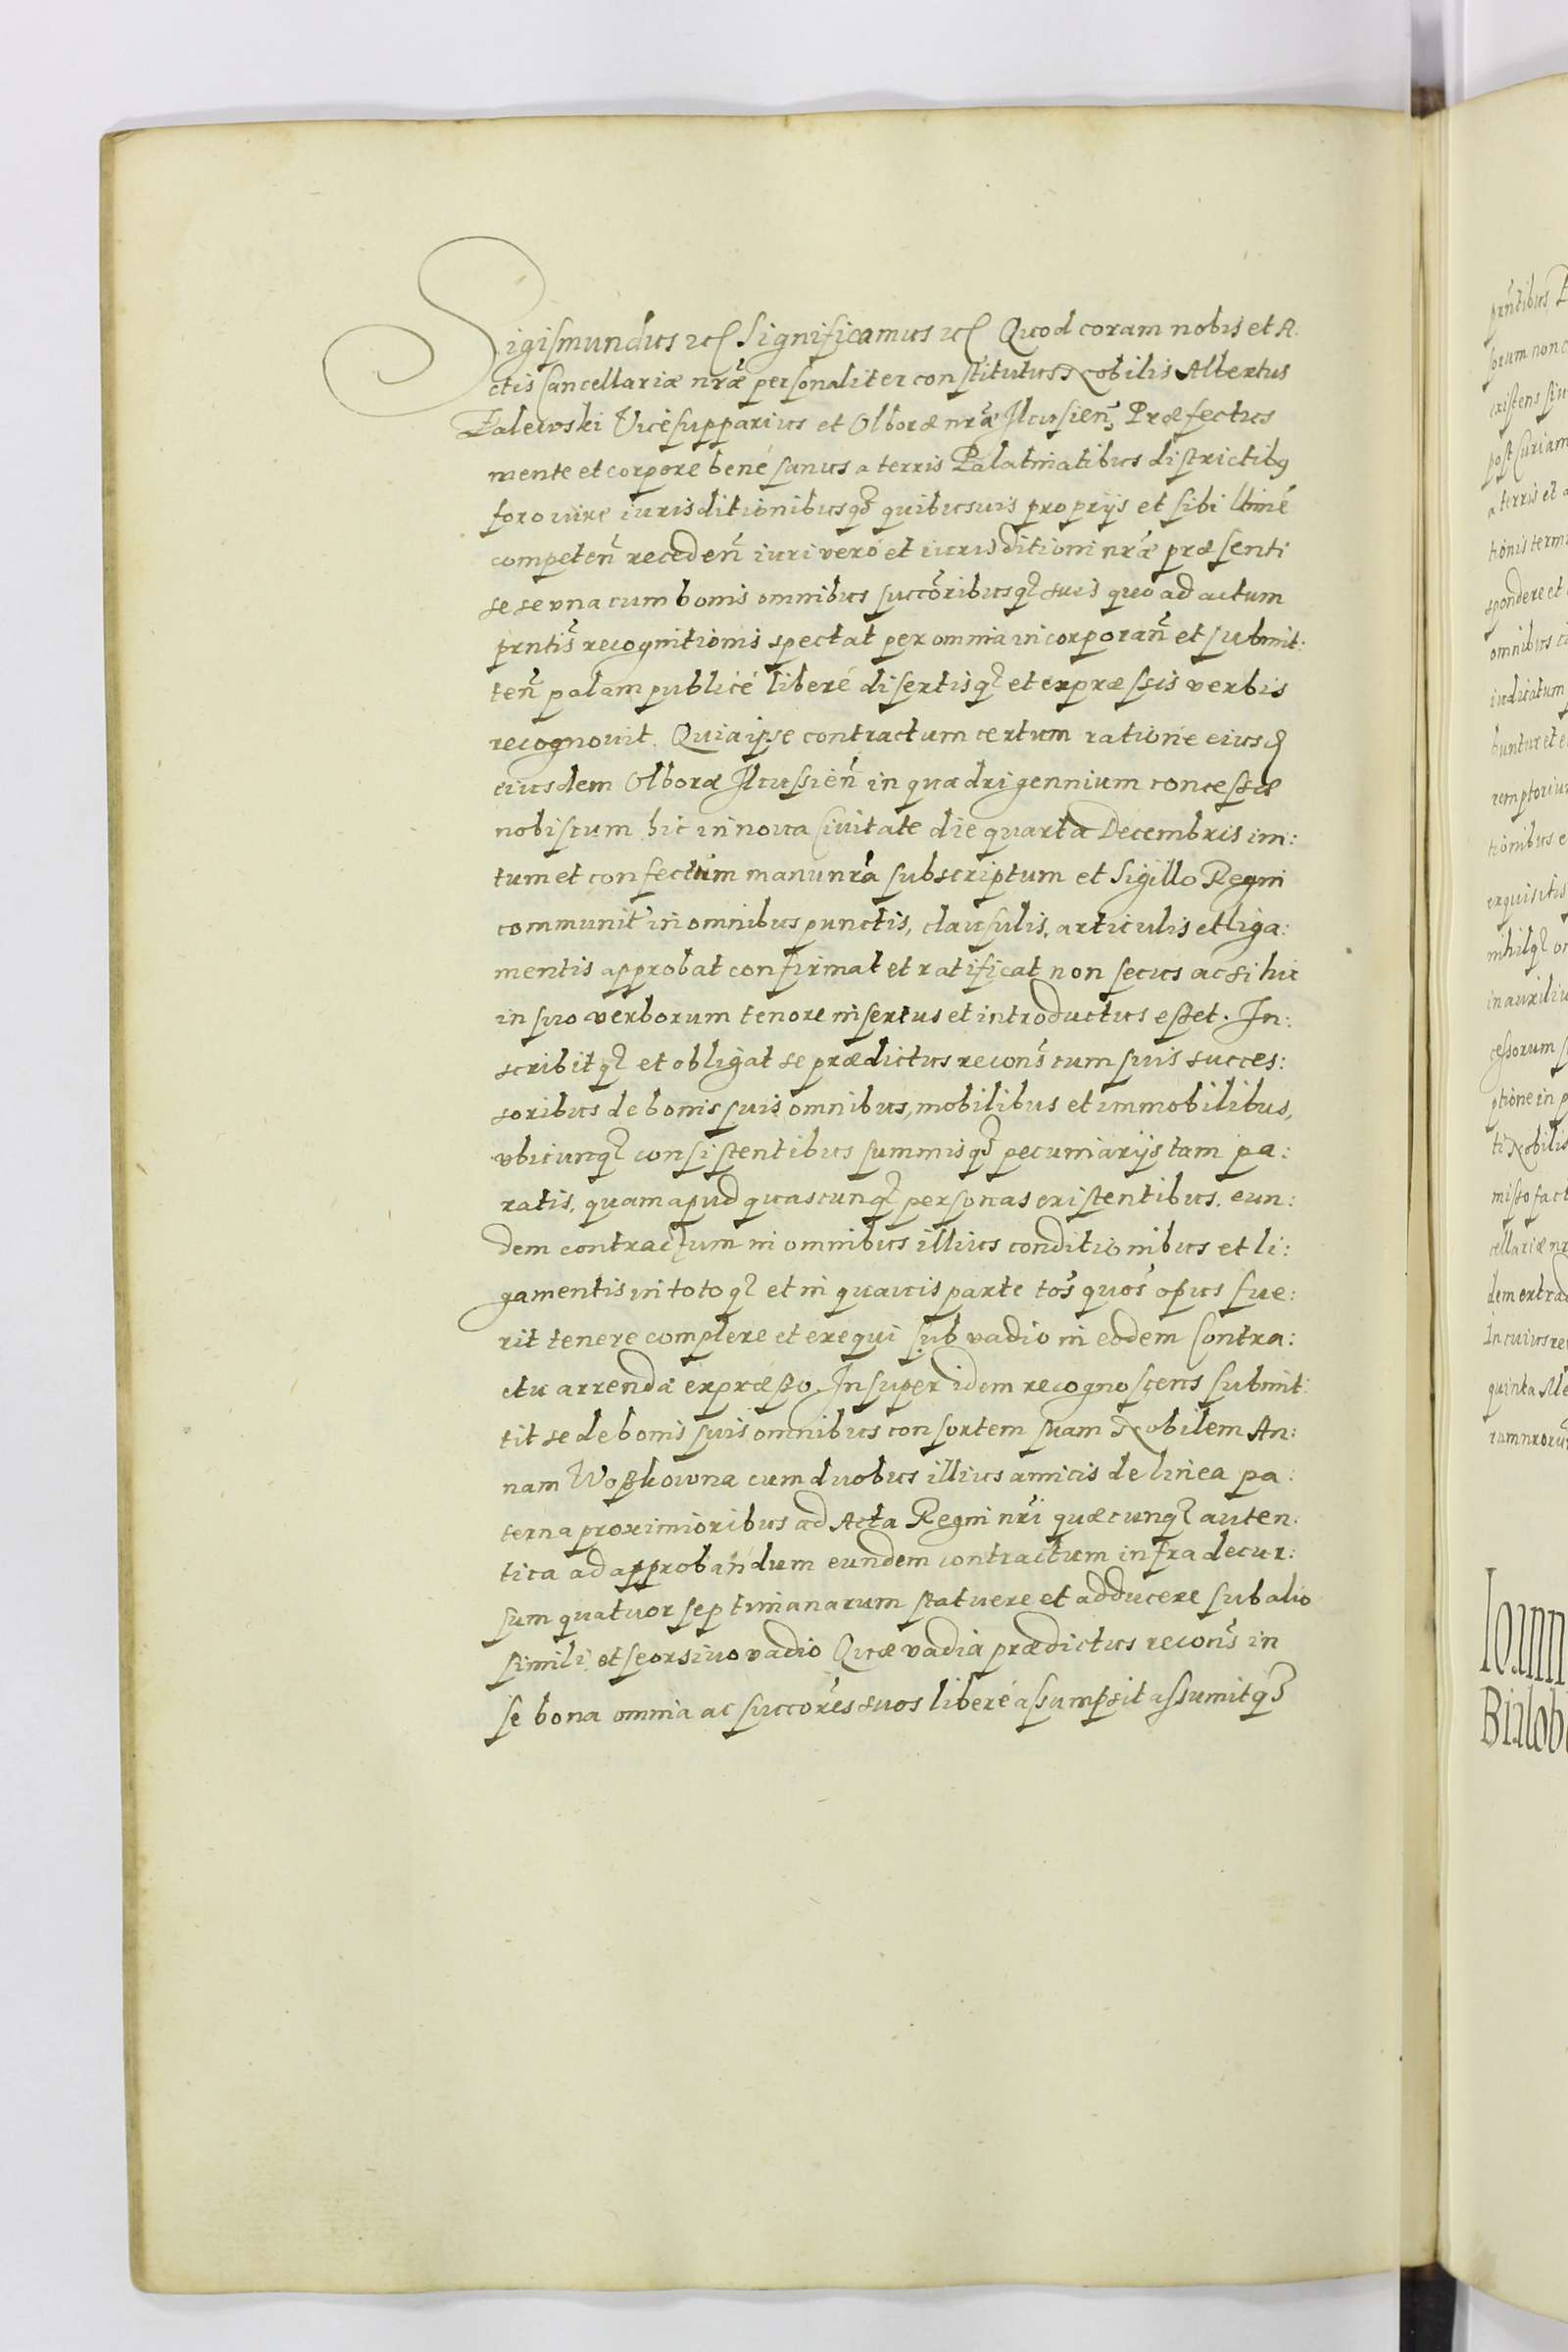 Sigismundus etc. Significamus etc. Quod coram nobis et A
ctis Cancellariæ nr̃æ personaliter constitutus Nobilis Albertus
Zalewski Vicesupparius et Olboræ nr̃æ Ilcusień Præfectus
mente et corpore bené sanus a terris Palatinatibus districtibus
foro iure iurisditionibusq́ue quibusuis proprijs et sibi ltimé
competeñ recedeñ iuri veró et iurisditioni nr̃æ præsenti
sese vna cum bonis omnibus succõribusq́ue suis quo ad actum
prntis̃ recognitionis spectat per omnia incorporañ et submit:
teñ palam publicé liberé disertisq́ue et expræssis verbis
recognouit. Quia ipse contractum certum ratione eiusd
eiusdem Olboræ Ilcussień in quadrigennium concessæ
nobiscum hic in noua Ciuitate die quarta Decembris ini:
tum et confectum manu nr̃a subscriptum et Sigillo Regni
communit̃ in omnibus punctis, clausulis, articulis et liga:
mentis approbat confirmat et ratificat non secus ac si hic
in suo verborum tenore insertus et introductus esset. In:
scribitq́ue et obligat se prædictus recoñs cum suis succes:
soribus de bonis suis omnibus, mobilibus et immobilibus,
vbicunq́ue consistentibus summisq́ue pecuniarijs tam pa:
ratis, quam apud quascunq́ue personas existentibus. eun:
dem contractum in omnibus illius conditionibus et li:
gamentis in totoq́ue et in quauis parte tos̃ quos̃ opus fue:
rit tenere complere et exequi sub vadio in eodem Contra:
ctu arrendæ expræsso. Insuper idem recognoscens submit:
tit se de bonis suis omnibus consortem suam Nobilem An:
nam Woßkowna cum duobus illius amicis de linea pa:
terna proximioribus ad Acta Regni nr̃i quæcunq́ue auten:
tica ad approbandum eundem contractum infra decur:
sum quatuor septimanarum statuere et adducere sub alio
simili et seorsiuo vadio Quæ vadia prædictus recoñs in
se bona omnia ac succõres suos liberé assumpsit assumitq́ue